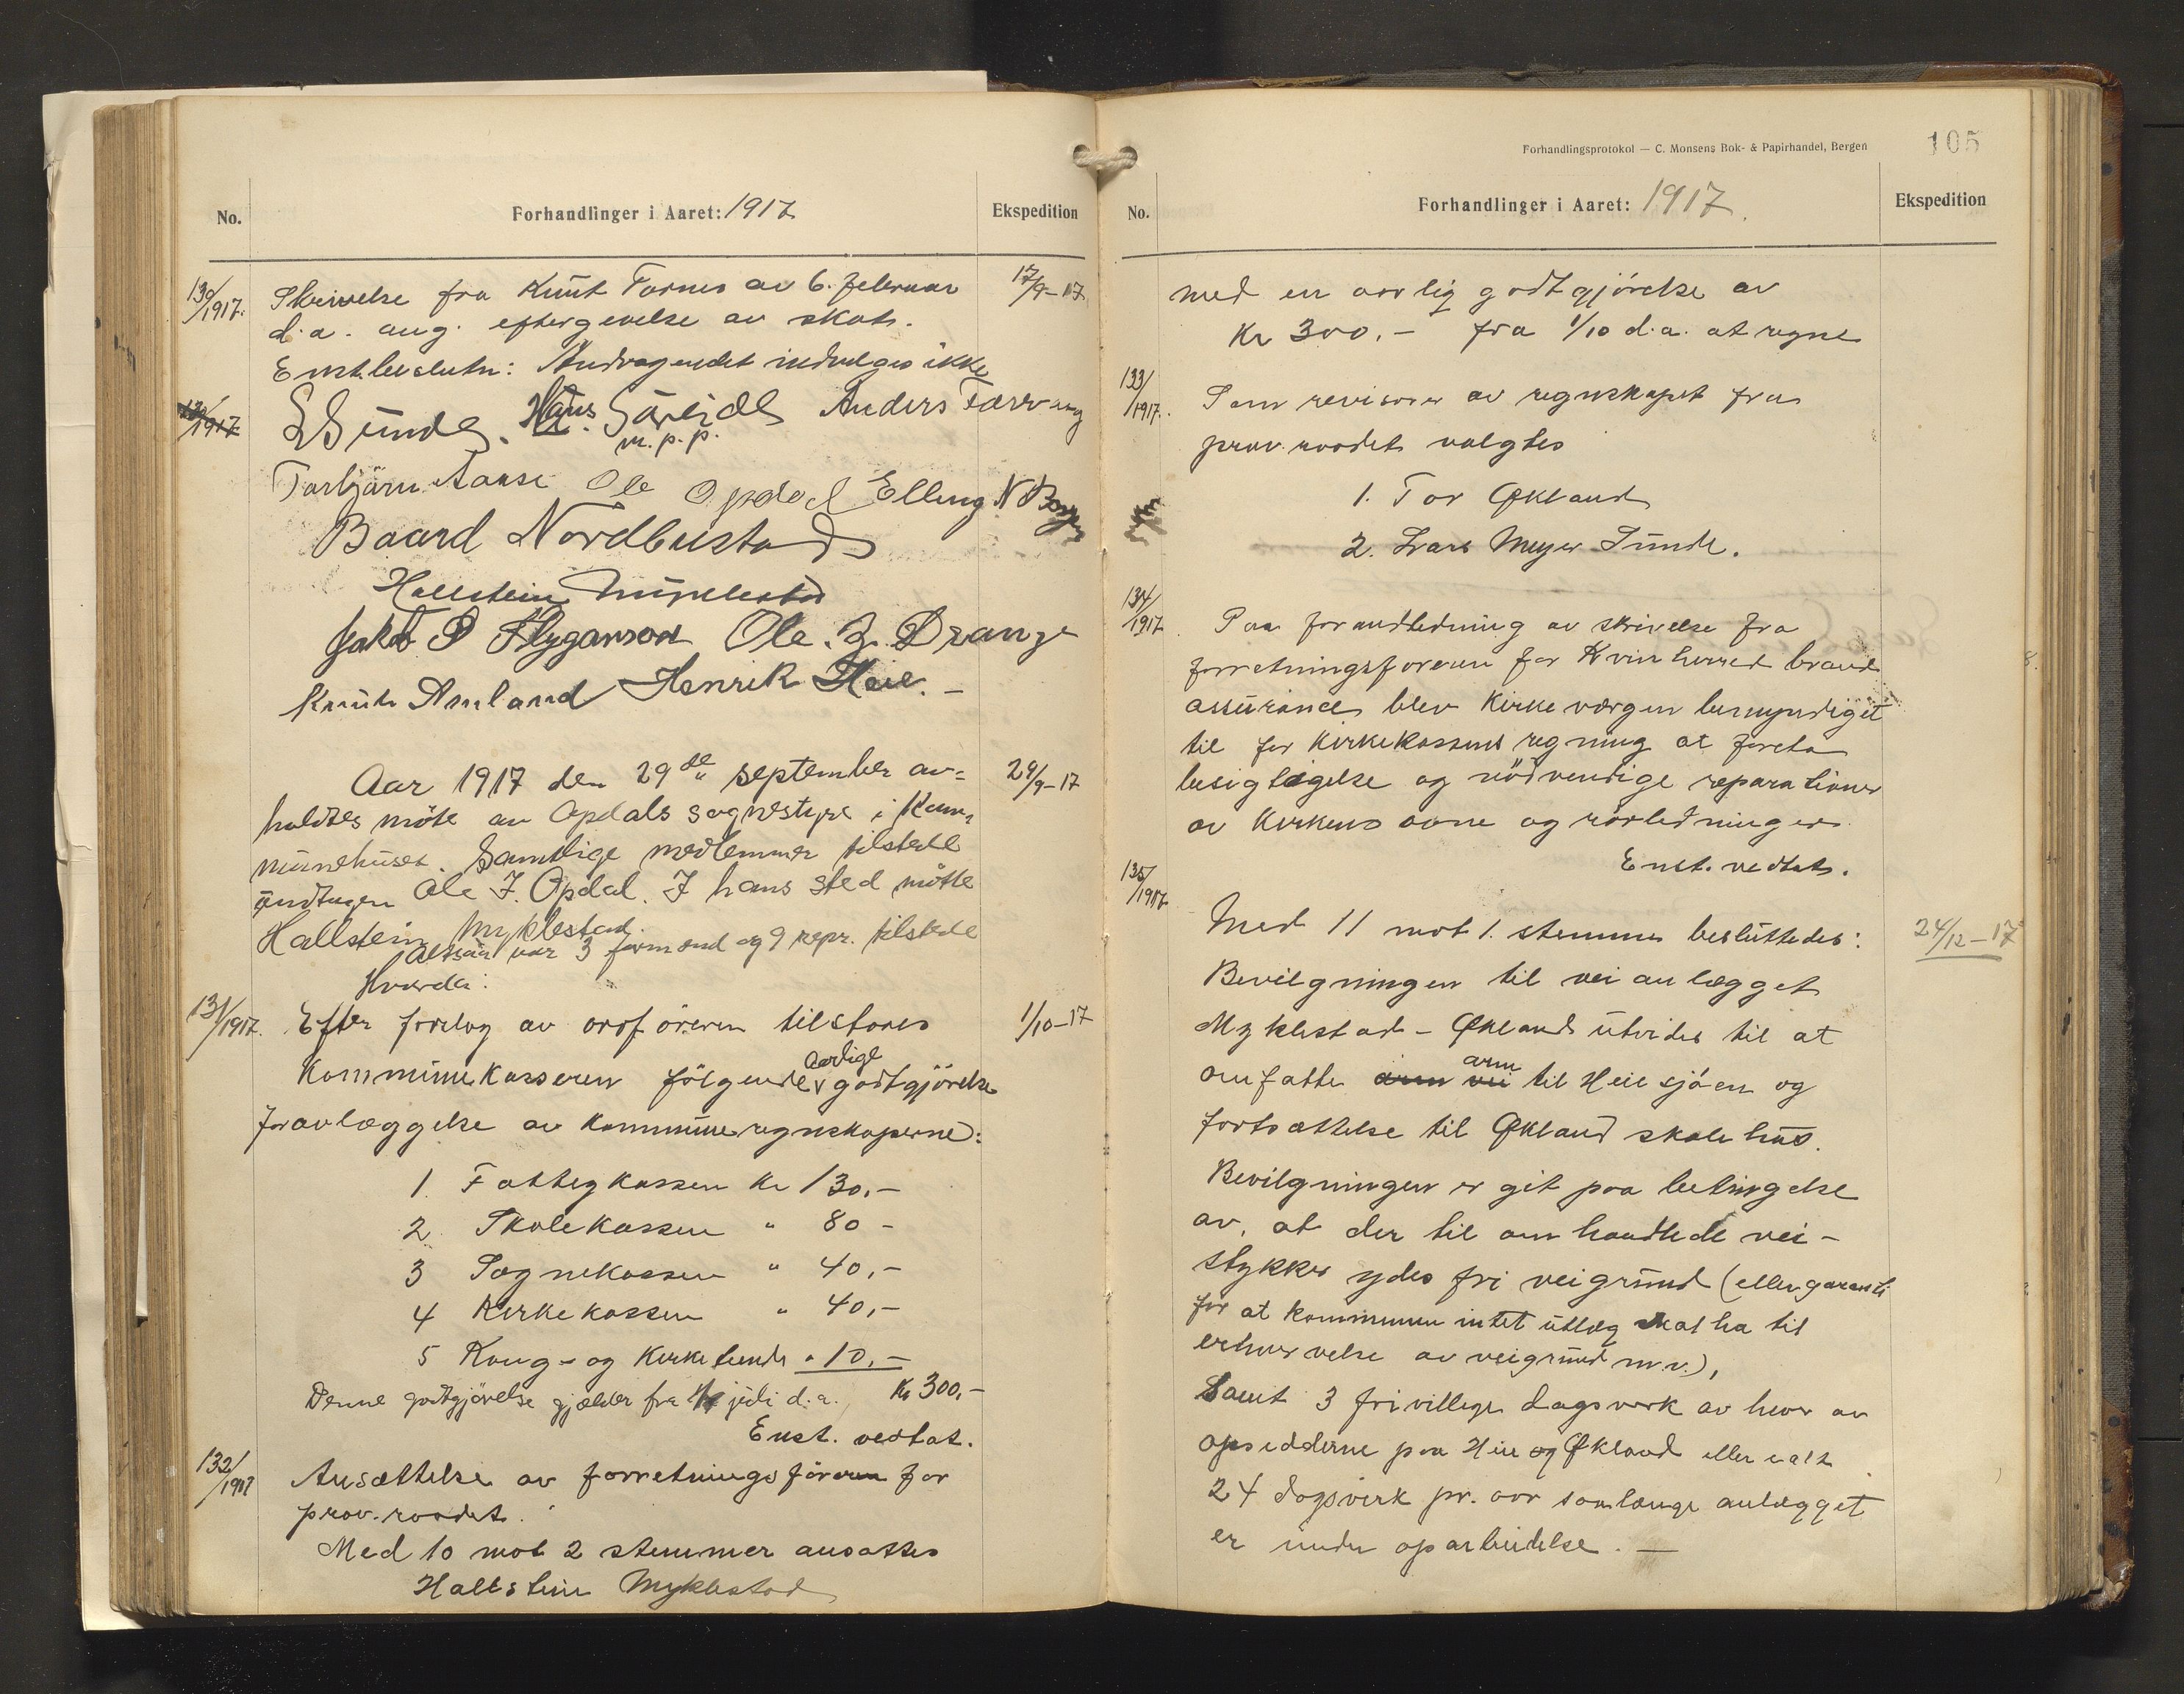 No.
Forhandlinger i Aaret: 1917
Ekspedition
130/1917.
Skrivelse fra Knut Tornes av 6. februar
17/9-17
d.a. ang. eftergivelse av skat.
Enst. beslutn: Andragendet indvilges ikke
130/1917
L Sunde. Hans Søreide Anders
m.p.p.
Torbjørn Aarse Ole Opdal Elling N
Baard Nordbustad
Hallstein Myklestad
Jakob P Flygansvær Ole J. Drange
Knut Amland Henrik Heie. -
Aar 1917 den 29de september av=
29/9-17
holdtes möte av Opdals sognestyre i Kom-
munehuset. Samtlige medlemmer tilstede
undtagen Ole J. Opdal. I hans sted mötte
Hallstein Myklestad.
Altsaa var 3 formænd og 9 repr. tilstede
Hvorda:
131/1917.
Efter forslag av ordföreren tilstoaes
1/10-17
Kommunekasseren fölgende aarlige godtgjörelse
for avlæggelse av kommuneregnskaperne:
1. Fattigkassen Kr 130,-
2. Skolekassen " 80 -
3 Sognekassen " 40,-
4 Kirkekassen " 40,-
5 Kong- og Kirketiende " 10,-
Denne godtgjörelse gjælder fra juli d.a. Kr 300,-
Enst. vedtat.
132/1917
Ansættelse av forretningsförer for
prov.raadet.
Med 10 mot 2 stemmer ansattes
Hallstein Myklestad
Forhandlingsprotokol — C. Monsens Bok- & Papirhandel, Bergen
105
No.
Forhandlinger i Aaret: 1917.
Ekspedition
med en aarlig godtgjörelse av
Kr 300.- fra 1/10 d.a. at regne
133/1917.
Som revisorer av regnskapet fra
prov.raadet valgtes
1. Tor Økland
2. Lars Meyer Sunde.
134/1917
Paa forandledning av skrivelse fra
forretningsföreren for Kvinherred brand
assurance blev Kirkeværgen bemyndiget
til for Kirkekassens regning at foreta
besigtigelse og nödvendige reparationer
av Kirkens ovne og rörledninger.
Enst. vedtat.
135/1917
Med 11 mot 1. stemme besluttedes:
24/12-17
Bevilgningen til veianlægget
Myklestad - Økland utvides til at
omfatte arm vei arm til Heie sjöen og
fortsættelse til Økland skolehus.
Bevilgningen er git paa betingelse
av, at der til omhandlede vei-
stykker ydes fri veigrund (eller garanti
for at kommunen intet utlæg skal ha til
erhvervelse av veigrund m.v.),
Samt 3 frivillige dagsverk av hver av
opsidderne paa Heie og Økland eller ialt
24 dagsverk pr. aar saalænge anlægget
er under oparbeidelse. -